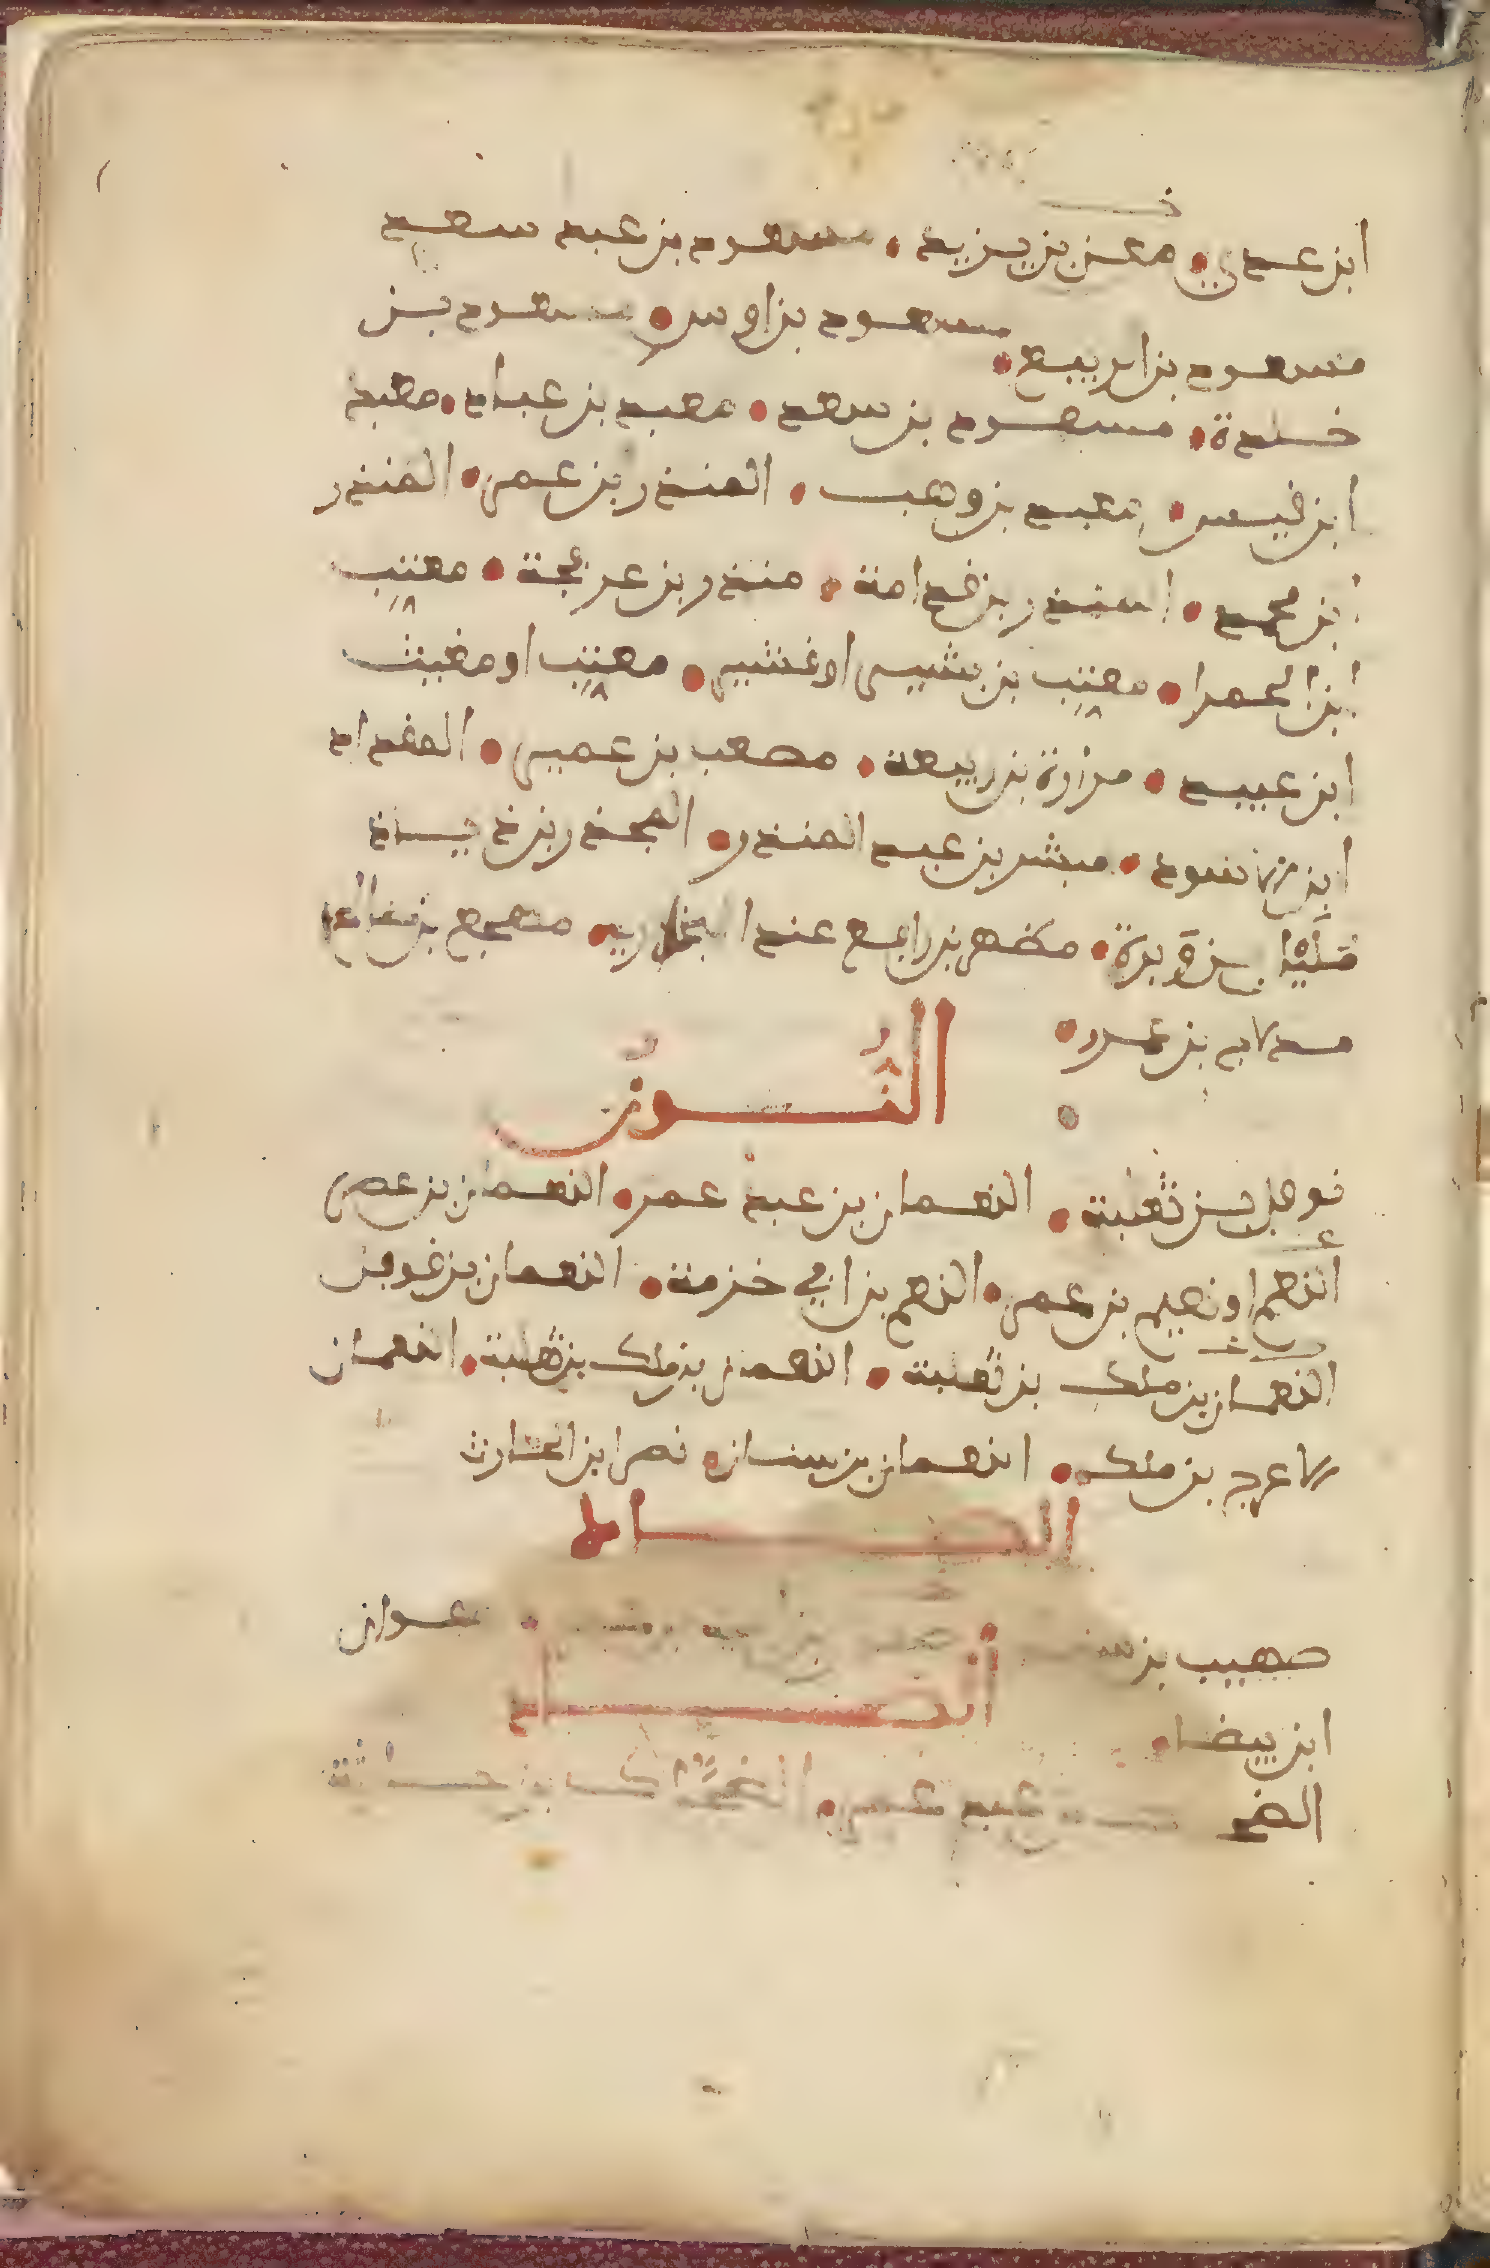 ابن عدي • معن بن يزيد • مسعود بن عبد سعد
مسعود بن الربيع • مسعود بن اوس • مسعود بن
خلدة • مسعود بن سعد • معبد بن عباد • معبد
ابن قيس • معبد بن وهب • المنذر بن عمر • المنذر
ابن محمد • المنذر بن قدامة • منذر بن عرفجة • معتب
ابن الحمرا • معتب بن بشير او قشير • معتب او مغيث
ابن عبيد • مرارة بن ربيعة • مصعب بن عمير • المقداد
ابن الاسود • مبشر بن عبد المنذر • المجذر بن ذياد
مليل بن وبرة • مظهر بن رافع عند • مهجع بن صالح
مدلاج بن عمرو •
النُّون
نوفل بن ثعلبة • النعمان بن عبد عمر • النعمان بن عصر
النعم او نعيم بن عمر • النعم بن ابي خزمة • النعمان بن قوقل
النعمان بن ملك بن ثعلبة • النعمان بن ملك بن ثعلبة • النعمان
الاعرج بن ملك • النعمان بن سنان • نصر ابن الحارث
الصاد
صهيب بن سنان صفوان
ابن بيضا •
الضاد
الضحاك بن عبد عمر • الضحاك بن حارثة